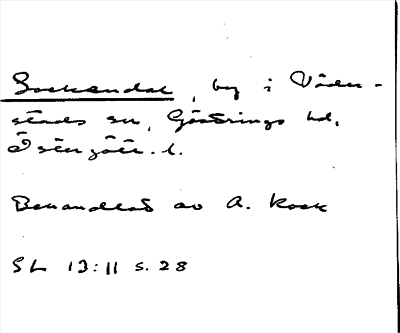 Sockendal, by i Väder-
stads sn, Göstrings hd,
Östergötl. l.
Behandlat av A. Kock
SL 13:11 s. 28